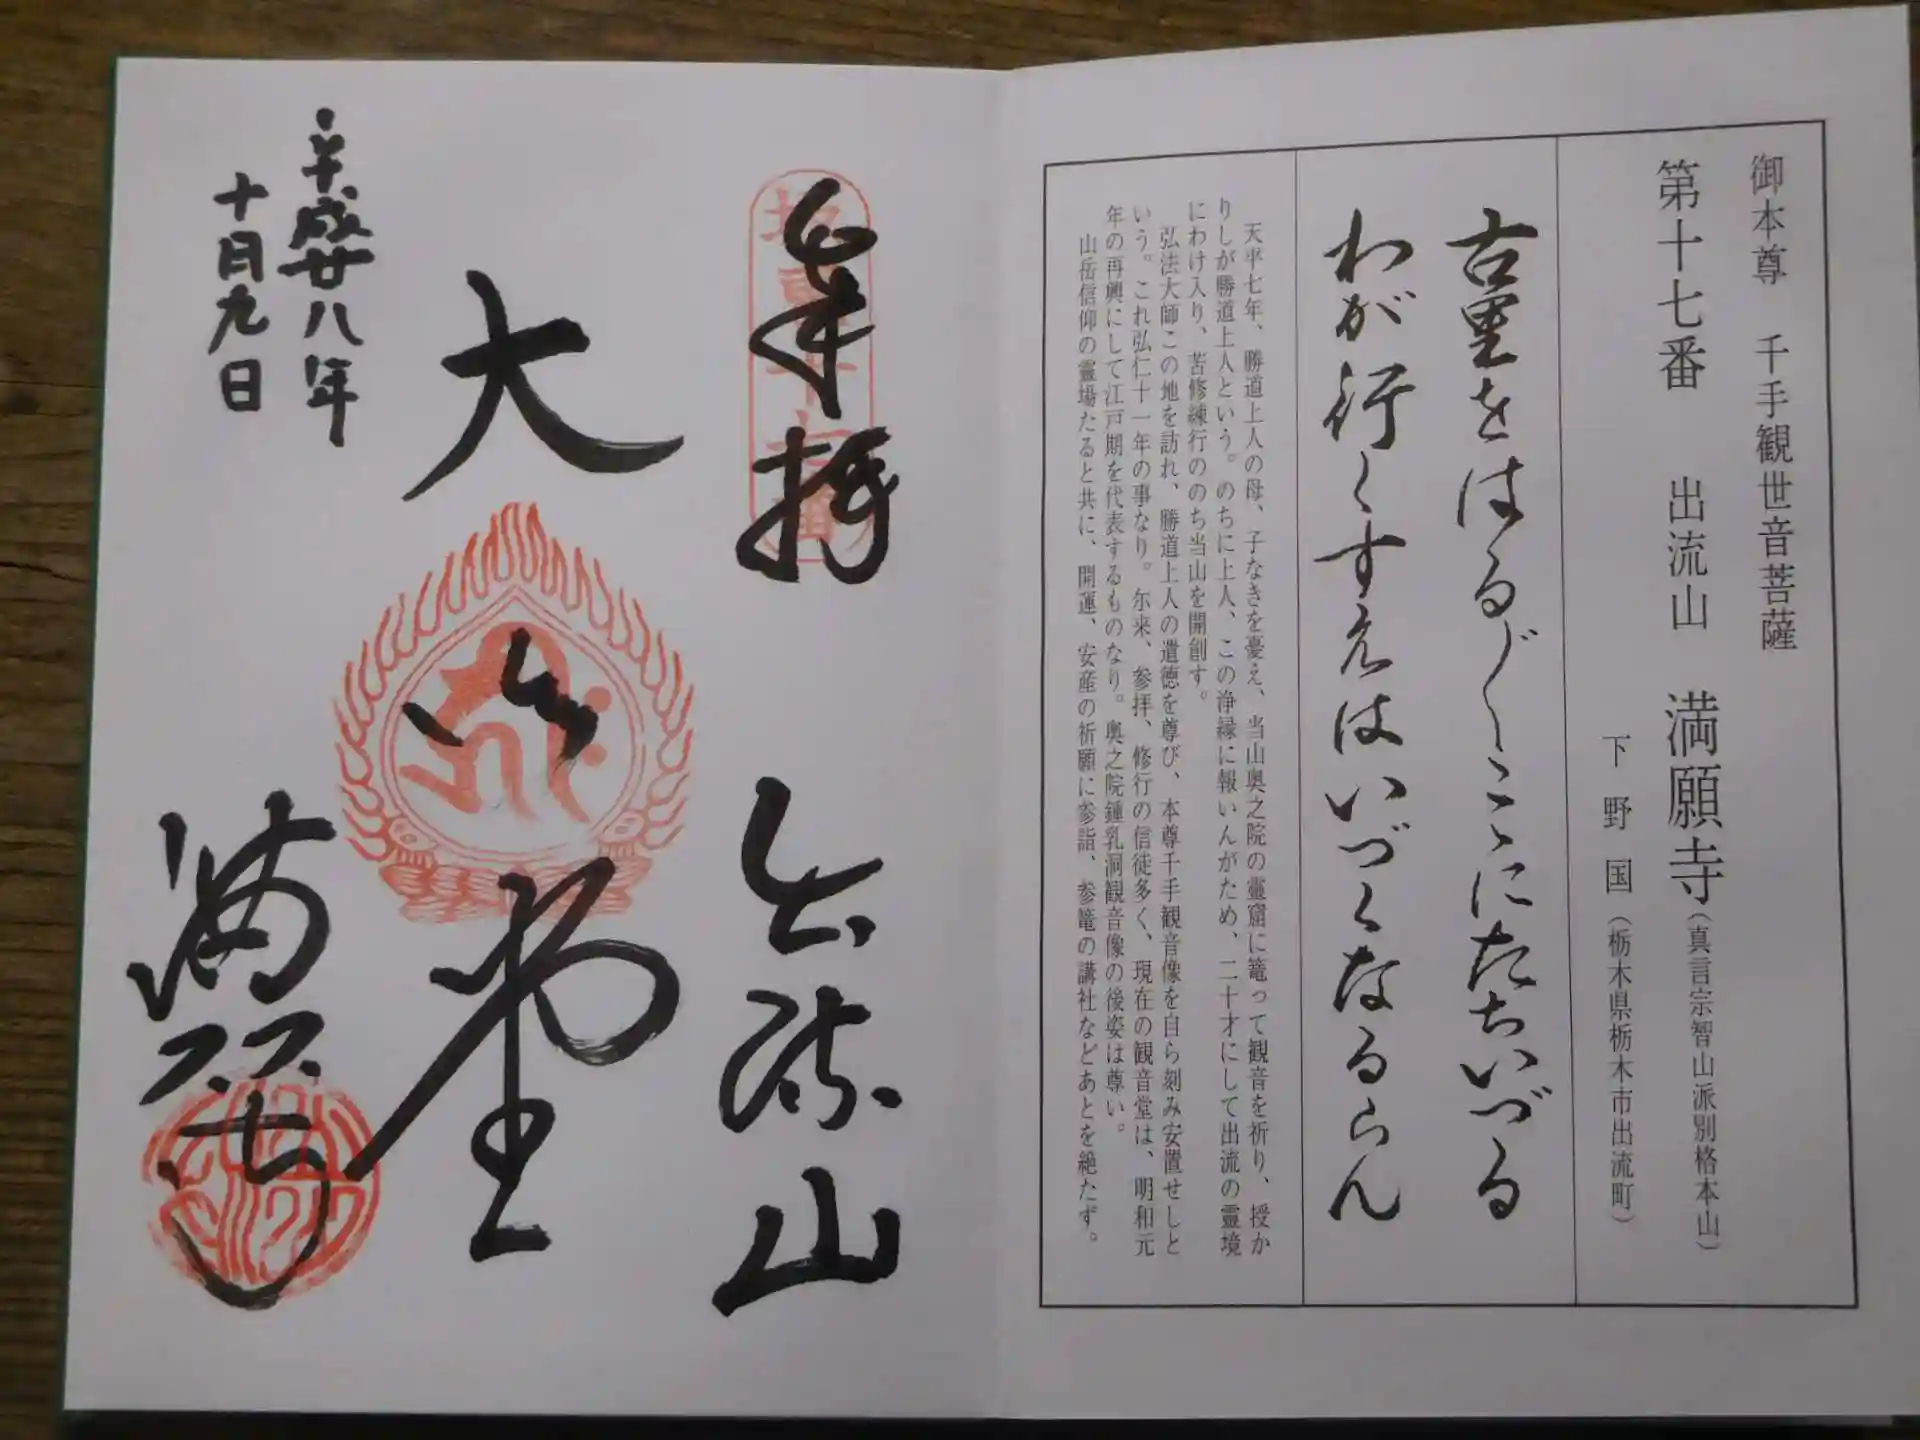 御本尊　千手観世音菩薩
第十七番　出流山　満願寺（真言宗智山派別格本山）
下野国（栃木県栃木市出流町）
古里をはる〴〵こゝにたちいづる
わが行くすえはいづくなるらん
天平七年、勝道上人の母、子なきを憂え、当山奥之院の霊窟に篭って観音を祈り、授か
りしが勝道上人という。のちに上人、この浄縁に報いんがため、二十才にして出流の霊境
にわけ入り、苦修練行ののち当山を開創す。
弘法大師この地を訪れ、勝道上人の遺徳を尊び、本尊千手観音像を自ら刻み安置せしと
いう。これ弘仁十一年の事なり。尓来、参拝、修行の信徒多く、現在の観音堂は、明和元
年の再興にして江戸期を代表するものなり。奥之院鍾乳洞観音像の後姿は尊い。
山岳信仰の霊場たると共に、開運、安産の祈願に参詣、参篭の講社などあとを絶たず。
奉拝
坂東十七番
出流山
大悲堂
満願寺
平成廿八年
十月九日